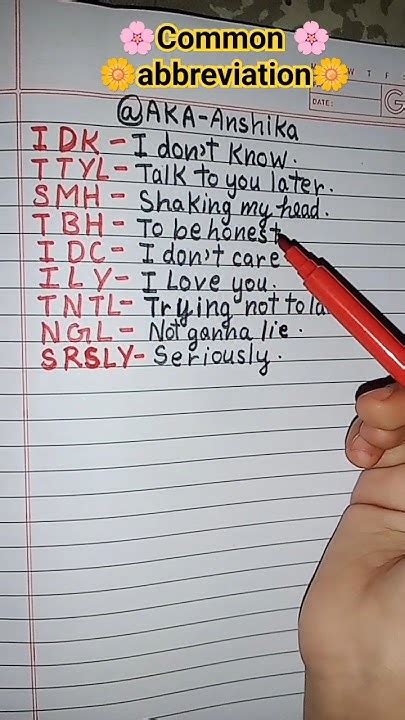 🌸Common🌸
🌼abbreviation🌼
W T F S
DATE:
G
@AKA-Anshika
IDK - I don't know.
TTYL - Talk to you later.
SMH - Shaking my head.
TBH - To be honest
IDC - I don't care
ILY - I Love you.
TNTL - Trying not to la
NGL - Not ganna lie.
SRSLY - Seriously.